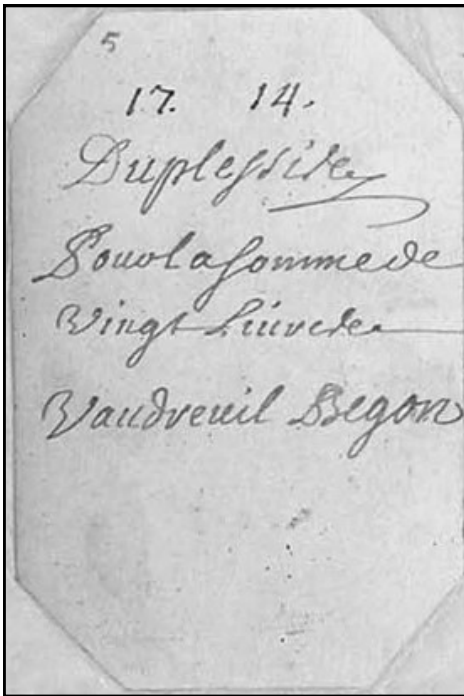 5
17. 14.
Duplessis
Pour la somme de
Vingt Livres
Vaudreuil Begon